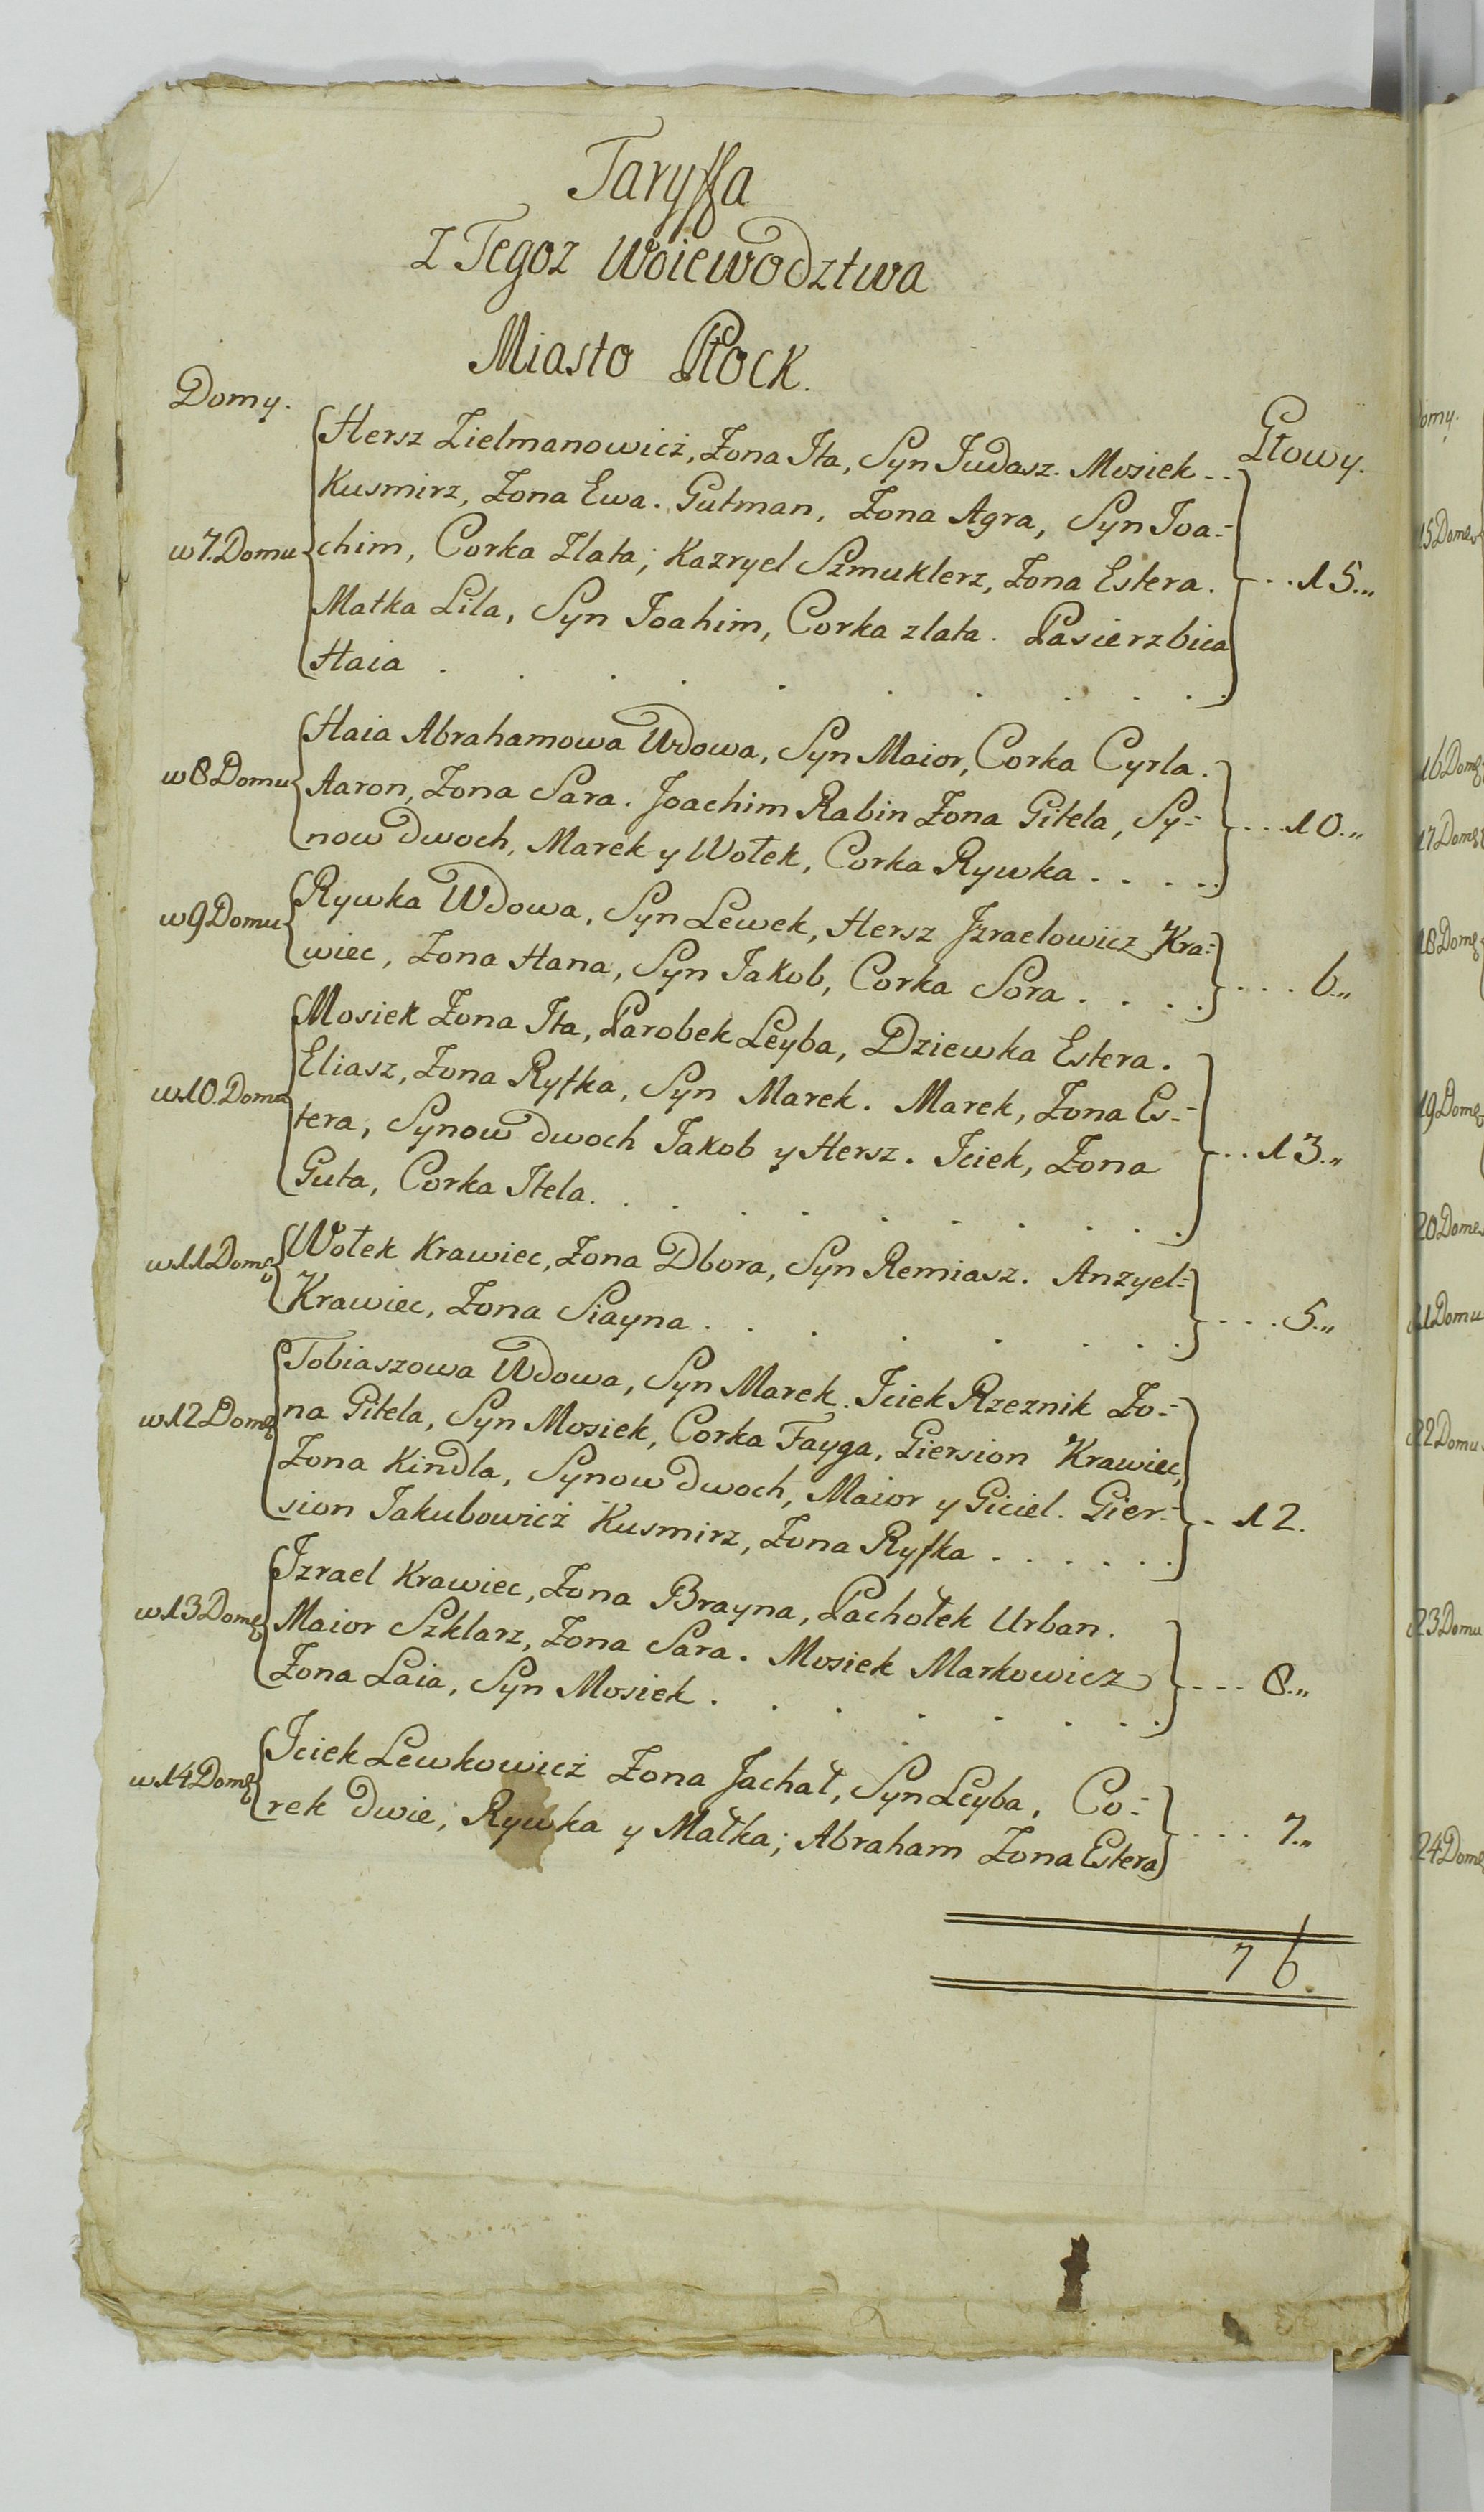 Taryffa
Z Tegoz Woiewodztwa
Miasto Płock.
Domy.
Głowy.
Hersz Zielmanowicż, Zona Ita, Syn Judasz. Mosiek..
Kusmirz, Zona Ewa. Gutman, Zona Agra, Syn Joa=
w 7. Domu chim, Corka Zlata; Kazryel Szmuklerz, Zona Estera. ...15...
Matka Lila, Syn Joahim, Corka zlata. Pasierzbica
Haia . . . . . . . . . . .
Haia Abrahamowa Wdowa, Syn Maior, Corka Cyrla.
w 8 Domu Aaron, Zona Sara. Joachim Rabin Zona Gitela, Sy= ...10...
now dwoch, Marek y Wołek, Corka Rywka . . . . .
w 9 Domu Rywka Wdowa, Syn Lewek, Hersz Jzraelowicz Kra=
wiec, Zona Hana, Syn Jakob, Corka Sora . . . . .... 6...
Mosiek Zona Ita, Parobek Leyba, Dziewka Estera.
w 10. Domu Eliasz, Zona Ryfka, Syn Marek. Marek, Zona Es=
tera, Synow dwoch Jakob y Hersz. Jciek, Zona ...13...
Guta, Corka Itela. . . . . . . . . .
w 11 Domu Wołek Krawiec, Zona Dbora, Syn Remiasz. Anzyel=
Krawiec, Zona Siayna . . . . . . . ....5...
Tobiaszowa Wdowa, Syn Marek. Jciek Rzeznik Zo=
w 12 Domu na Gitela, Syn Mosiek, Corka Fayga, Giersion Krawiec,
Zona Kindla, Synow dwoch, Maior y Giciel. Gier= . 12.
sion Jakubowicż Kusmirz, Zona Ryfka . . . . . .
Jzrael Krawiec, Zona Brayna, Pachołek Urban.
w 13 Domu Maior Szklarz, Zona Sara. Mosiek Markowicz
Zona Laia, Syn Mosiek . . . . . . . .... 8...
w 14 Domu Jciek Lewkowicż Zona Jachał, Syn Leyba, Co=
rek dwie, Rywka y Małka; Abraham Zona Estera .... 7...
76.
omy.
15 Domu
16 Domu
17 Domu
18 Domu
19 Domu
20 Domu
21 Domu
22 Domu
23 Domu
24 Domu